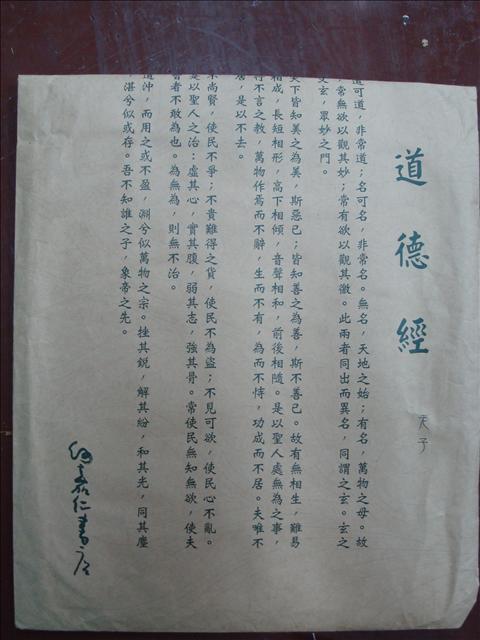 道德經
道可道，非常道；名可名，非常名。無名，天地之始；有名，萬物之母。故
常無欲以觀其妙；常有欲以觀其徼。此兩者同出而異名，同謂之玄。玄之
又玄，眾妙之門。
天下皆知美之為美，斯惡已；皆知善之為善，斯不善已。故有無相生，難易
相成，長短相形，高下相傾，音聲相和，前後相隨。是以聖人處無為之事，
行不言之教，萬物作焉而不辭，生而不有，為而不恃，功成而不居。夫唯不
居，是以不去。
不尚賢，使民不爭；不貴難得之貨，使民不為盜；不見可欲，使民心不亂。
是以聖人之治：虛其心，實其腹，弱其志，強其骨。常使民無知無欲，使夫
智者不敢為也。為無為，則無不治。
道沖，而用之或不盈，淵兮似萬物之宗。挫其銳，解其紛，和其光，同其塵
湛兮似或存。吾不知誰之子，象帝之先。
何嘉仁書店